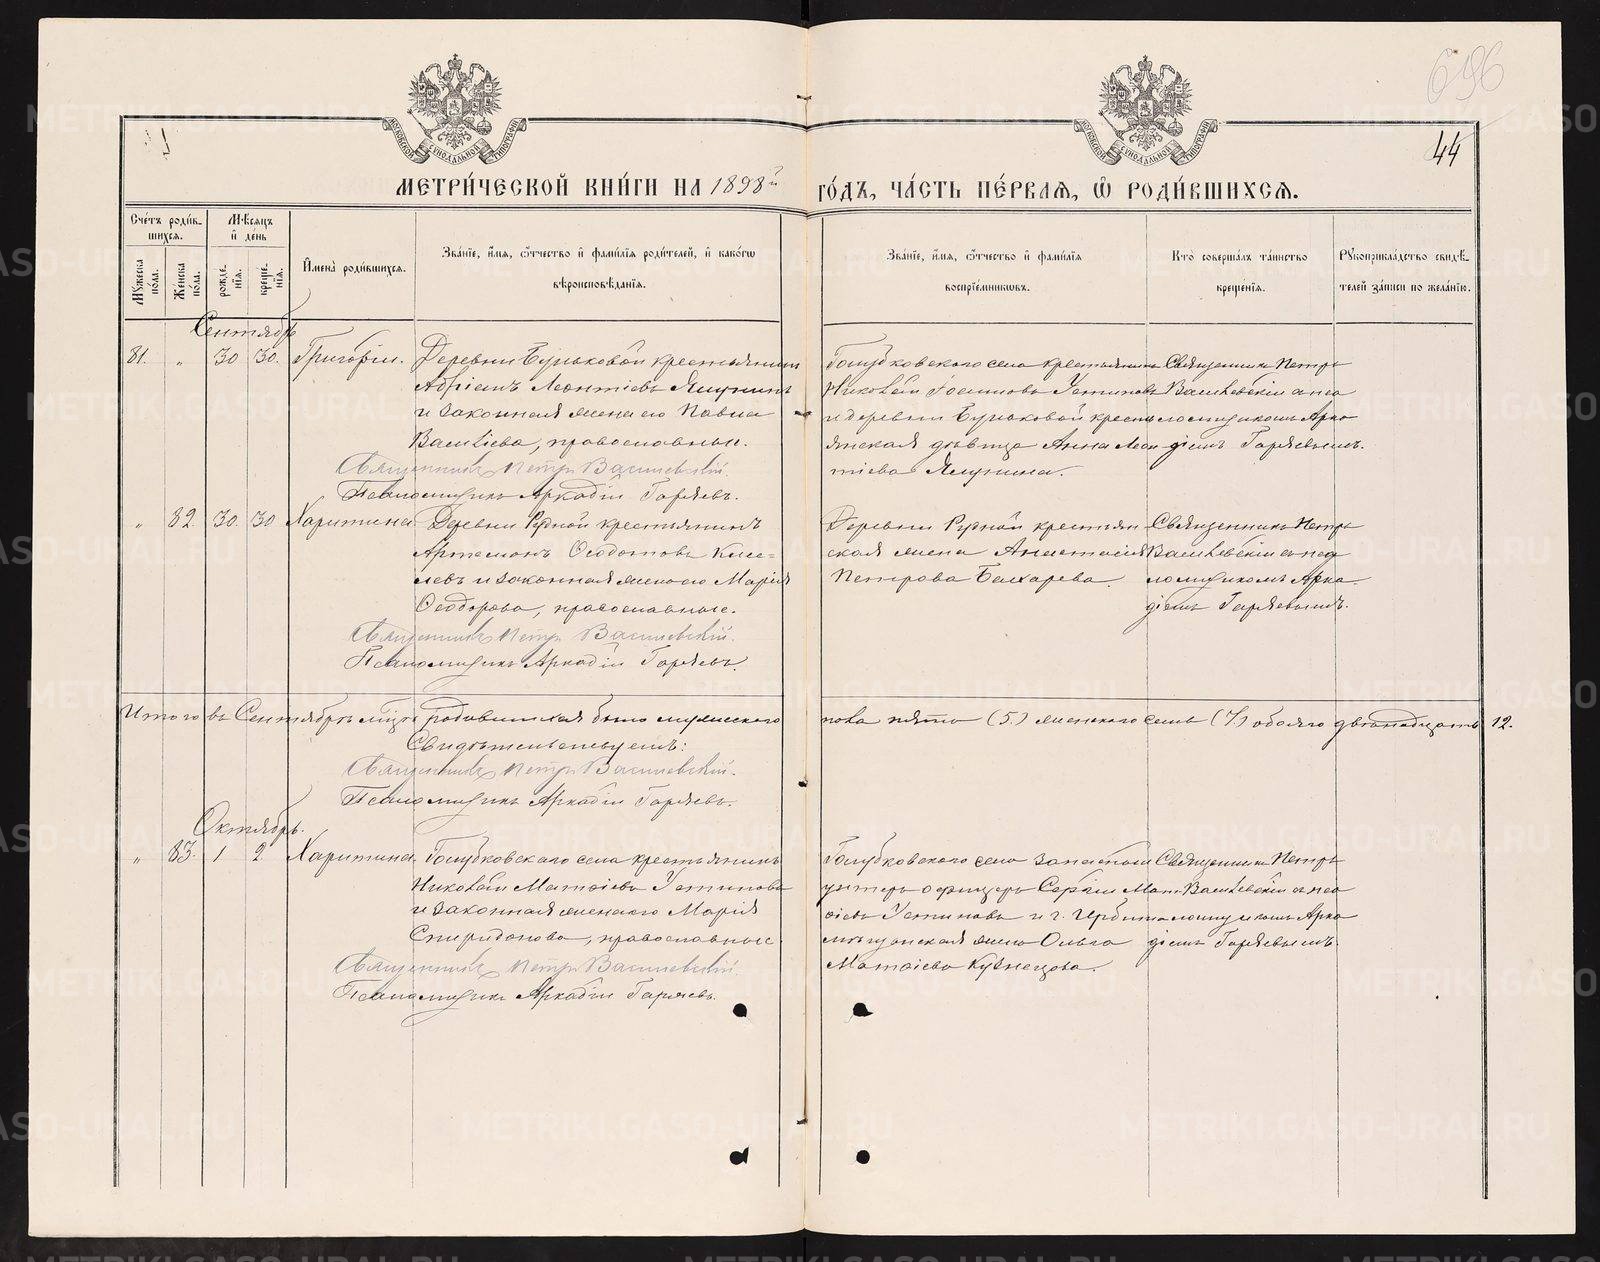 696
44
МЕТРИ́ЧЕСКОЙ КНИ́ГИ НА 1898й ГО́ДЪ, ЧА́СТЬ ПЕ́РВАЯ, Ѿ РОДИ́ВШИХСЯ.
Сче́тъ роди́вшихся.
Му́жеска по́ла.
Же́нска по́ла.
Мѣ́сяцъ и де́нь
рожде́нія.
креще́нія.
Имена̀ роди́вшихся.
Зва́ніе, и́мя, о́тчество и фами́лія роди́телей, и како́гѡ
вѣроисповѣ́данія.
Зва́ніе, и́мя, о́тчество и фами́лія
воспріе́мниковъ.
Кто̀ соверша́лъ та́инство
креще́нія.
Рукоприкла́дство свидѣ́-
телей за́писи по жела́нію.
Сентябрь
81. „ 30 30. Григорій.
Деревни Буньковой крестьянинъ
Адріанъ Леонтіевъ Ялунинъ
и законная жена его Павла
Василіева, православные.
Священникъ Петръ Василевскій.
Псаломщикъ Аркадій Горяевъ.
Голубковскаго села крестьянинъ
Николай Устиновъ
и деревни Буньковой кресть-
янская дѣвица Анна Леон-
тіева Ялунина.
Священникъ Петръ
Василевскій съ пса-
ломщикомъ Арка-
діемъ Горяевымъ.
„ 82. 30. 30 Харитина
Деревни Рудной крестьянинъ
Артемонъ Ѳеодотовъ Кисе-
левъ и законная жена его Марія
Ѳеодорова, православные.
Священникъ Петръ Василевскій.
Псаломщикъ Аркадій Горяевъ.
Деревни Рудной крестьян-
ская жена Анастасія
Петрова Бахарева.
Священникъ Петръ
Василевскій съ пса-
ломщикомъ Арка-
діемъ Горяевымъ.
Итого въ Сентябрѣ мцѣ родившихся было мужескаго пола пять (5.) женскаго семь (7.) обоего двѣнадцать 12.
Свидѣтельствуемъ:
Священникъ Петръ Василевскій.
Псаломщикъ Аркадій Горяевъ.
Октябрь.
„ 83. 1 2 Харитина.
Голубковскаго села крестьянинъ
Николай Матѳіевъ Устиновъ
и законная жена его Марія
Спиридонова, православные.
Священникъ Петръ Василевскій.
Псаломщикъ Аркадій Горяевъ.
Голубковскаго села запасный
унтеръ офицеръ Сергій Мат-
ѳіевъ Устиновъ и г. Ирбита
мѣщанская жена Ольга
Матѳіева Кузнецова.
Священникъ Петръ
Василевскій съ пса-
ломщикомъ Арка-
діемъ Горяевымъ.